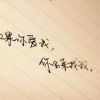 如果你爱我,
你会来找我。